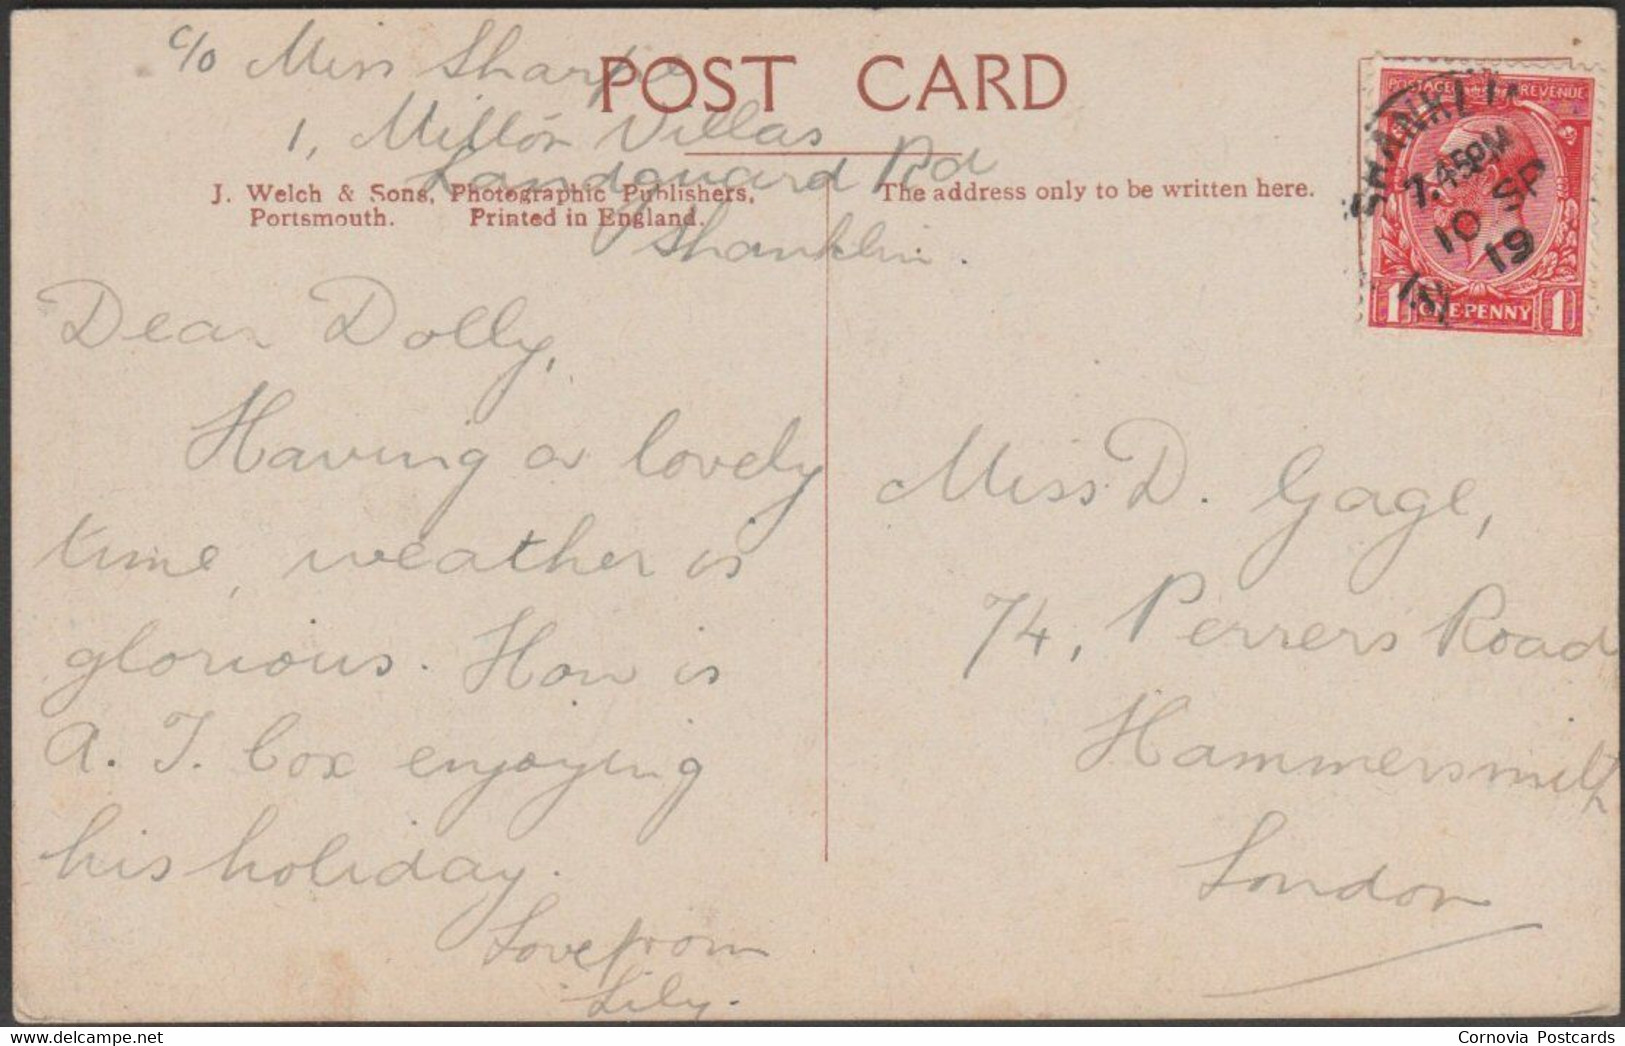 c/o Miss Sharpe
1, Milton Villas
Landguard Rd
Shanklin.
POST CARD
J. Welch & Sons, Photographic Publishers,
Portsmouth. Printed in England.
The address only to be written here.
POSTAGE REVENUE
1 ONE·PENNY 1
SHANKLIN
7.45PM
10 SP
19
I.W
Dear Dolly,
Having a lovely
time, weather is
glorious. How is
A. T. Cox enjoying
his holiday.
Love from
Lily.
Miss D. Gage,
74, Perrers Road
Hammersmith
London
Cornovia Postcards